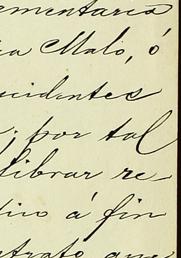 ementaria
ia Malo, ó
cidentes
; por tal
librar re-
dico á fin
ntrato que